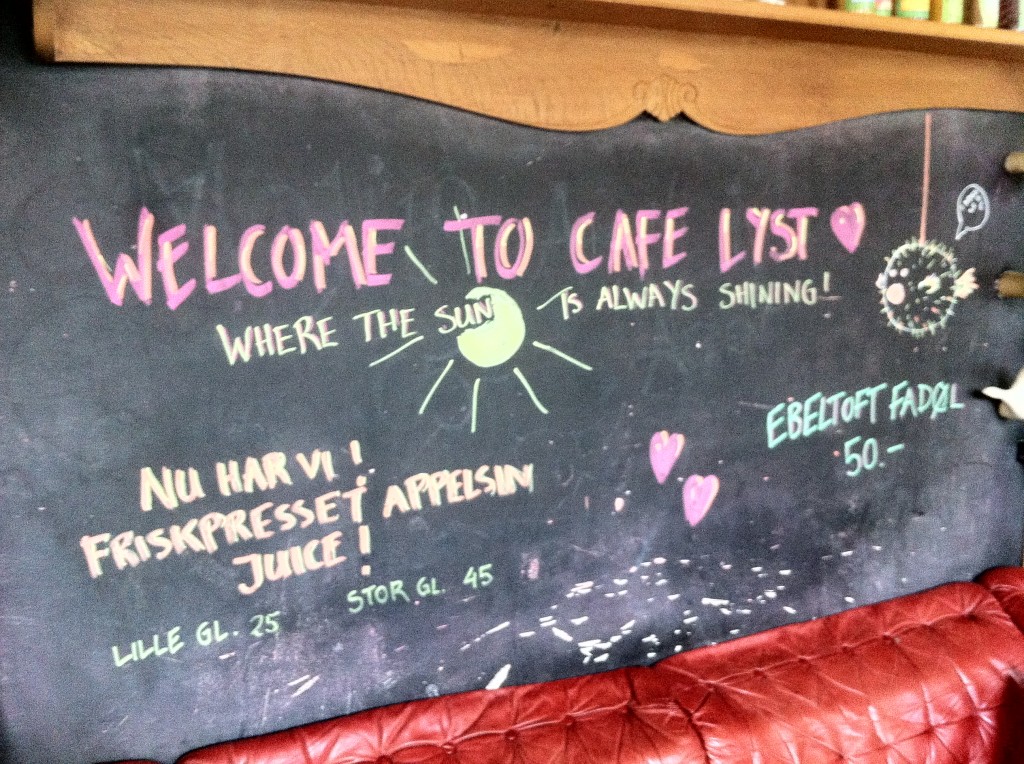 WELCOME TO CAFE LYST
WHERE THE SUN IS ALWAYS SHINING!
EBELTOFT FADØL
50.-
NU HAR VI!
FRISKPRESSET APPELSIN
JUICE!
LILLE GL. 25
STOR GL. 45